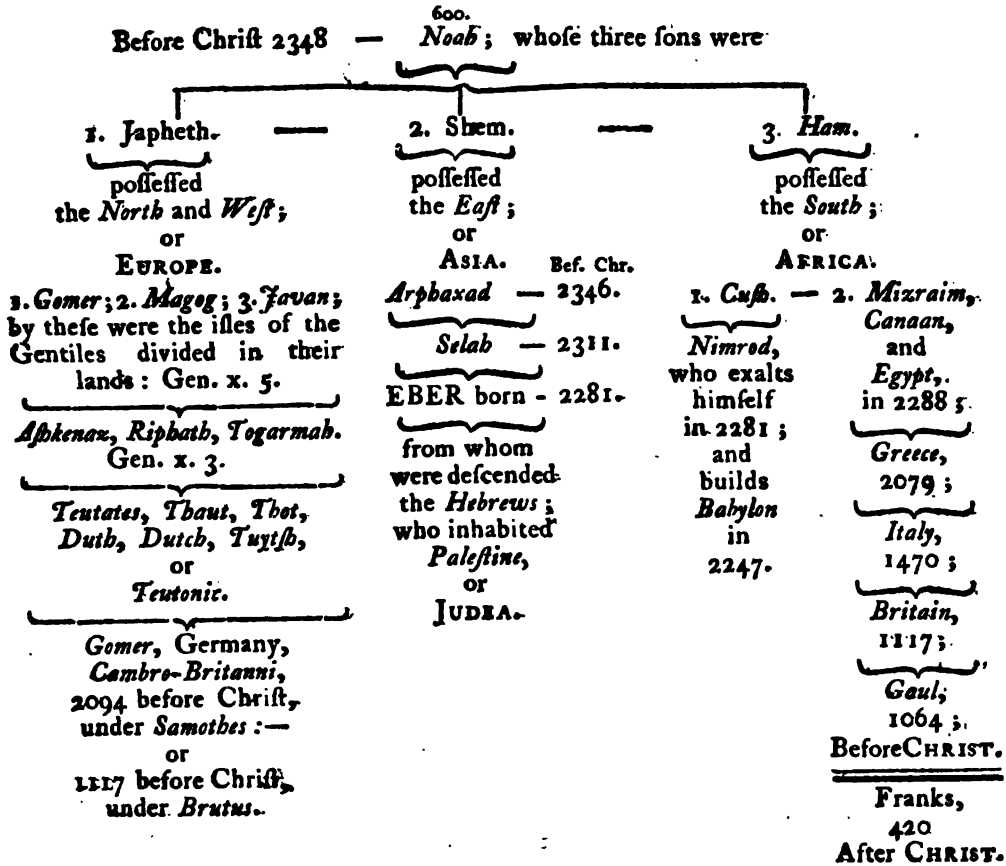 600.
Before Chriſt 2348 — Noah; whoſe three ſons were
1. Japheth. — 2. Shem. — 3. Ham.
poſſeſſed
the North and Weſt;
or
EUROPE.
1. Gomer; 2. Magog; 3. Javan;
by theſe were the iſles of the
Gentiles divided in their
lands: Gen. x. 5.
Aſhkenaz, Riphath, Togarmah.
Gen. x. 3.
Teutates, Thaut, Thot,
Duth, Dutch, Tuytſh,
or
Teutonic.
Gomer, Germany,
Cambro-Britanni,
2094 before Chriſt,
under Samothes:—
or
1117 before Chriſt,
under Brutus.
poſſeſſed
the Eaſt;
or
ASIA.
Bef. Chr.
Arphaxad — 2346.
Selah — 2311.
EBER born - 2281.
from whom
were deſcended
the Hebrews;
who inhabited
Paleſtine,
or
JUDEA.
poſſeſſed
the South;
or
AFRICA.
1. Cuſh. — 2. Mizraim,
Nimrod,
who exalts
himſelf
in 2281;
and
builds
Babylon
in
2247.
Canaan,
and
Egypt,
in 2288;
Greece,
2079;
Italy,
1470;
Britain,
1117;
Gaul,
1064;
Before CHRIST.
Franks,
420
After CHRIST.